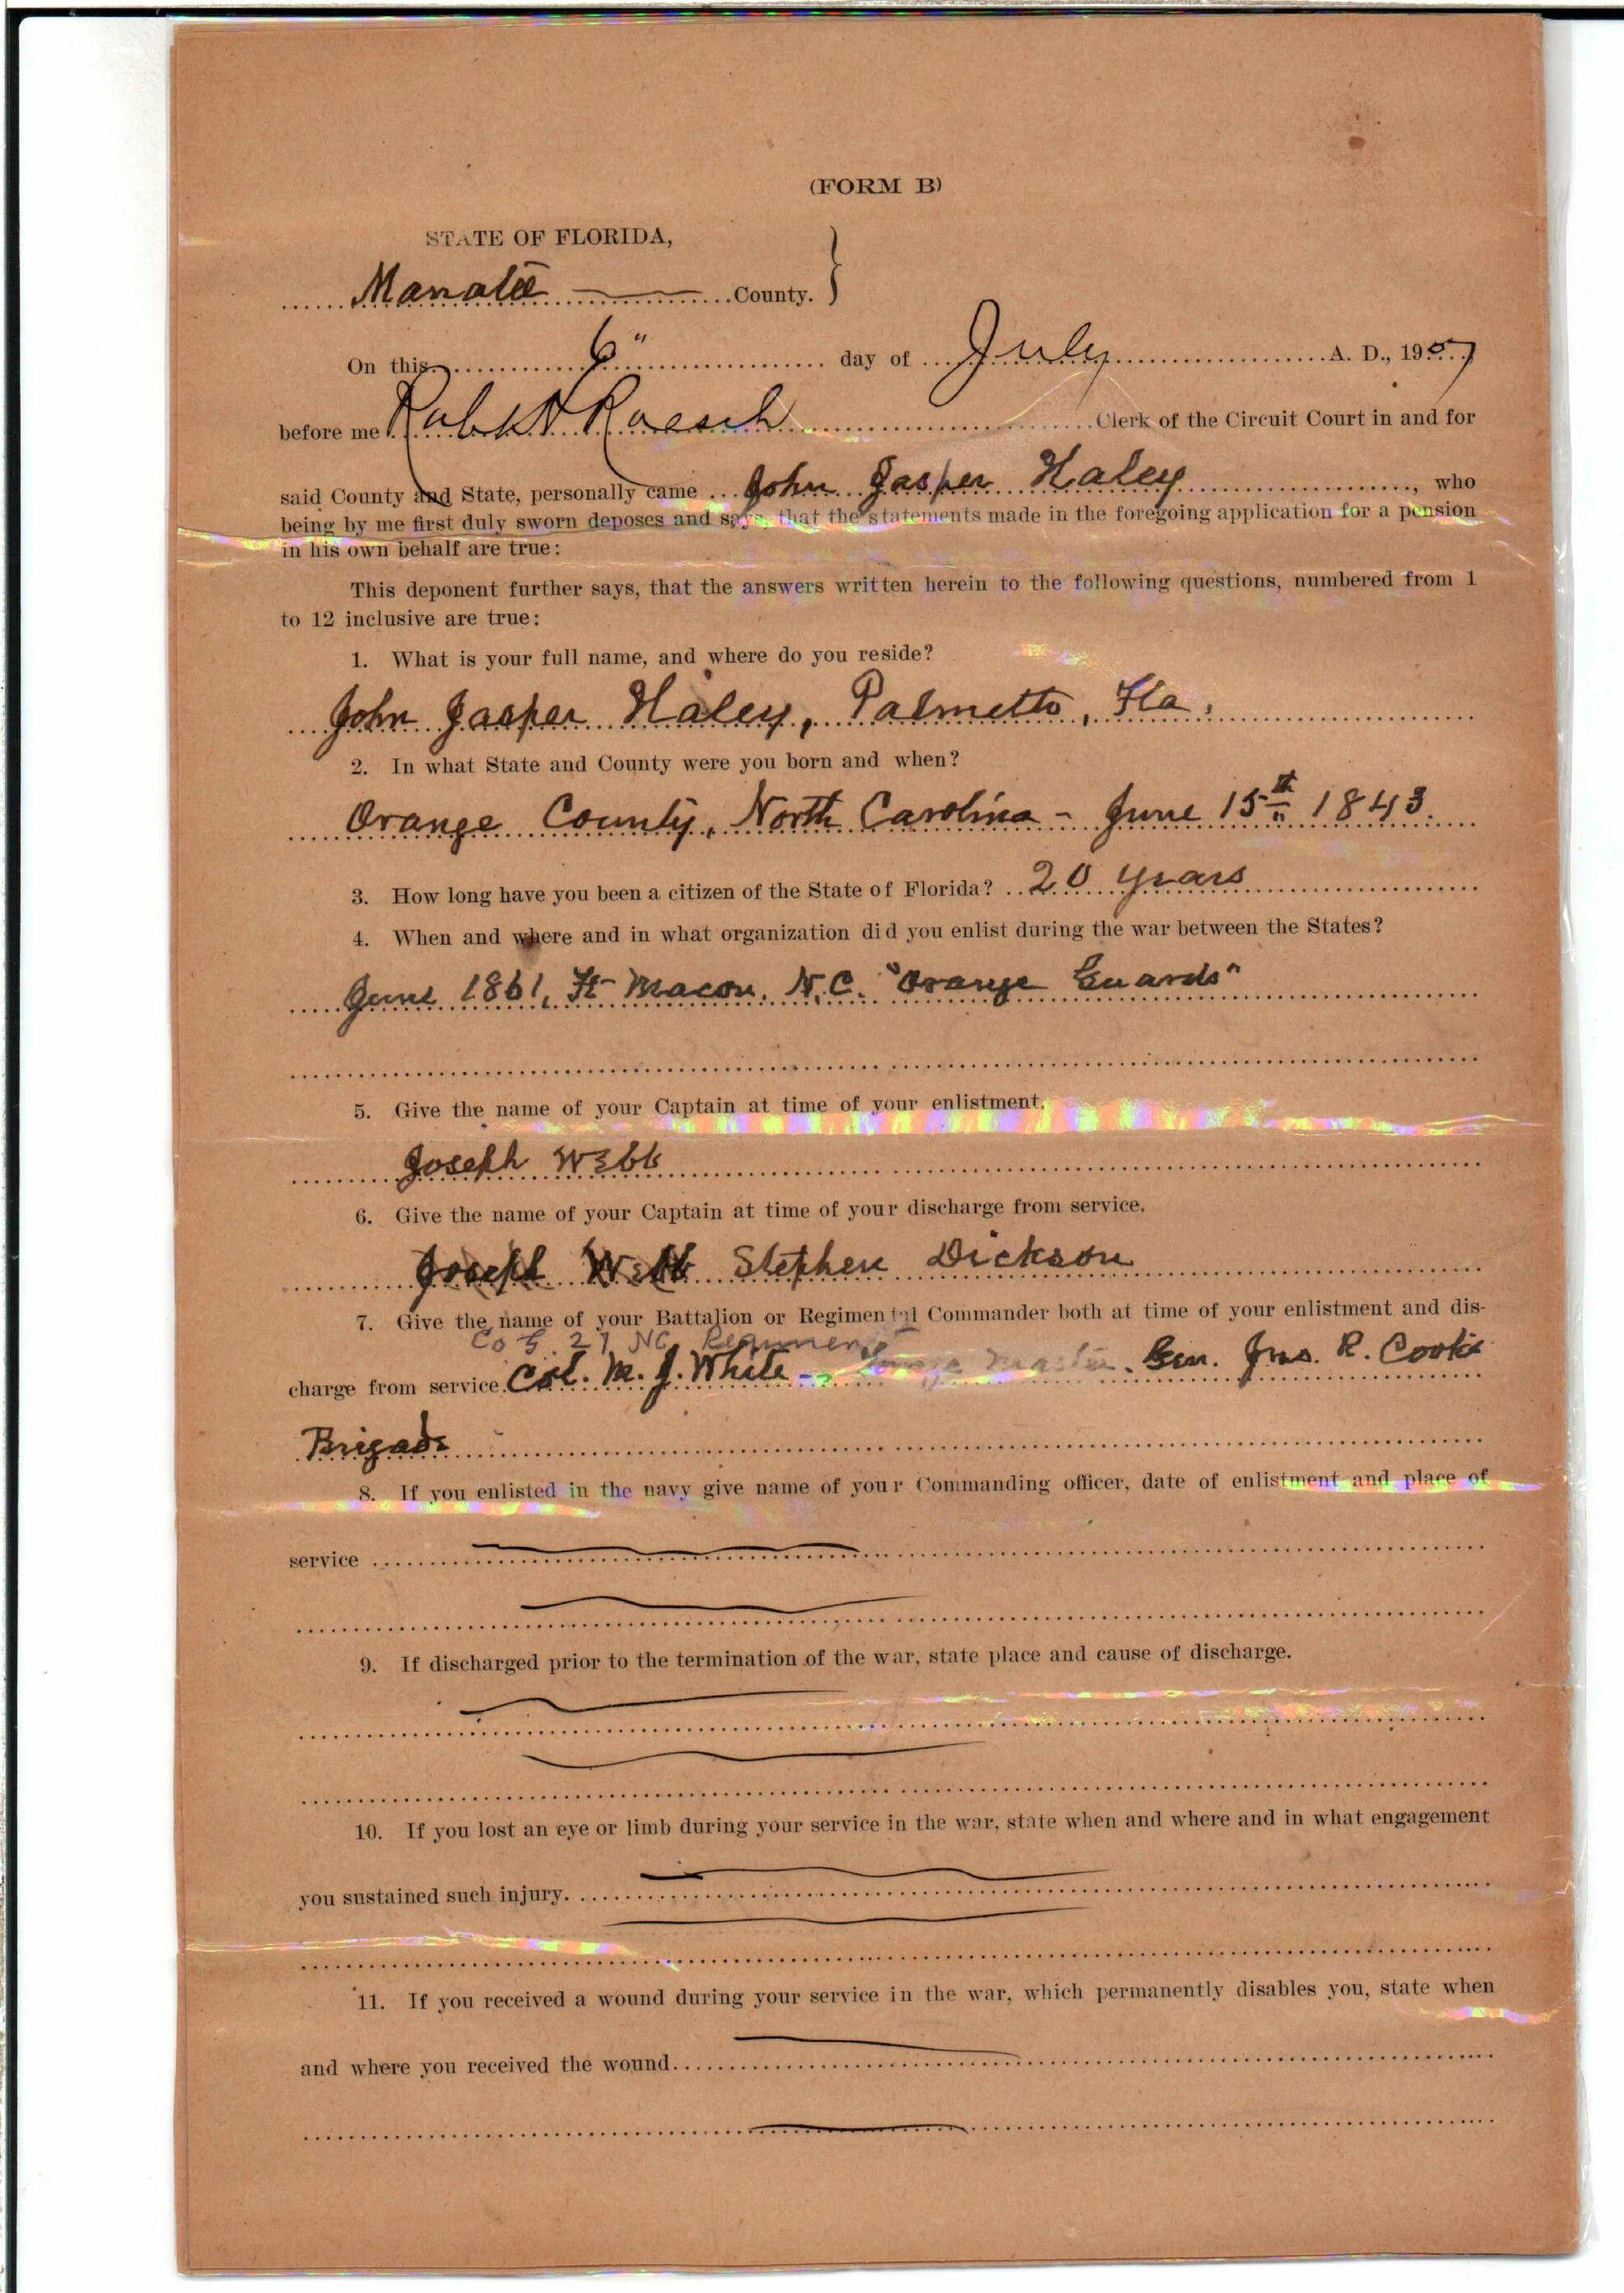 (FORM B)
STATE OF FLORIDA,
Manatee County.
On this 6" day of July A. D., 1907
before me Robt H Roesch Clerk of the Circuit Court in and for
said County and State, personally came John Jasper Haley, who
being by me first duly sworn deposes and says, that the statements made in the foregoing application for a pension
in his own behalf are true:
This deponent further says, that the answers written herein to the following questions, numbered from 1
to 12 inclusive are true:
1. What is your full name, and where do you reside?
John Jasper Haley, Palmetto, Fla.
2. In what State and County were you born and when?
Orange County, North Carolina - June 15th 1843.
3. How long have you been a citizen of the State of Florida? 20 years
4. When and where and in what organization did you enlist during the war between the States?
June 1861, Ft Macon, N.C. "Orange Guards"
5. Give the name of your Captain at time of your enlistment.
Joseph Webb
6. Give the name of your Captain at time of your discharge from service.
Joseph Webb Stephen Dickson
7. Give the name of your Battalion or Regimental Commander both at time of your enlistment and dis-
Co G. 27 NC Regiment
charge from service. Col. M. J. White - Gen. Jno. R. Cooke
Brigade
8. If you enlisted in the navy give name of your Commanding officer, date of enlistment and place of
service
9. If discharged prior to the termination of the war, state place and cause of discharge.
10. If you lost an eye or limb during your service in the war, state when and where and in what engagement
you sustained such injury.
11. If you received a wound during your service in the war, which permanently disables you, state when
and where you received the wound.